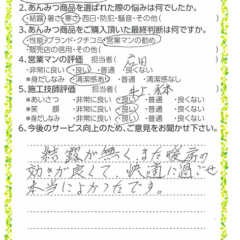 2.あんみつ商品を選ばれた際の悩みは何でしたか。
・結露・暑さ・寒さ・西日・防犯・騒音・その他(　)
3.あんみつ商品をご購入頂いた最終判断は何ですか。
・性能・ブランド・クチコミ・営業マンの勧め
・販売店の信用・その他(　)
4.営業マンの評価　担当者(　)
・非常に良い・良い・普通・良くない
・身だしなみ・清潔感あり・普通・清潔感なし
5.施工技師評価　担当者(　)
*あいさつ・非常に良い・良い・普通・良くない
*笑　顔・非常に良い・良い・普通・良くない
*身だしなみ・非常に良い・良い・普通・良くない
6.今後のサービス向上のため、ご意見をお聞かせ下さい。
結露が無く、また暖房の
効きが良くて、快適に過ごせ
本当によかったです。